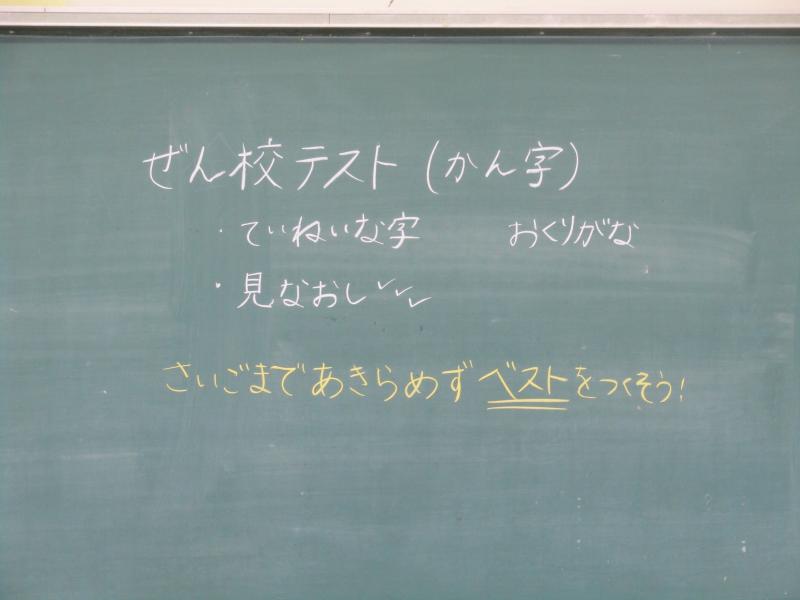 ぜん校テスト(かん字)
・ていねいな字　おくりがな
・見なおし✓✓✓
さいごまであきらめずベストをつくそう!